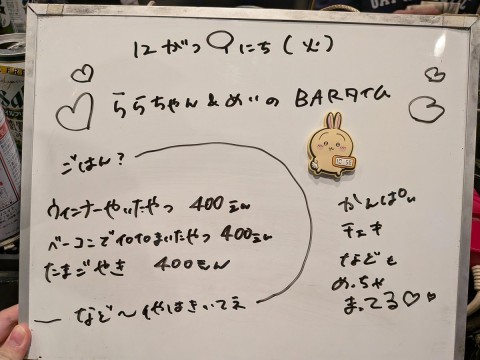 12がつ9にち(火)
ららちゃん&めいの BARタイム
ごはん?
ウィンナーやいたやつ 400えん
ベーコンでイロイロまいたやつ 400えん
たまごやき 400えん
など〜 やはきいてえ
かんぱい
チェキ
なども
めっちゃ
まってる♡♡